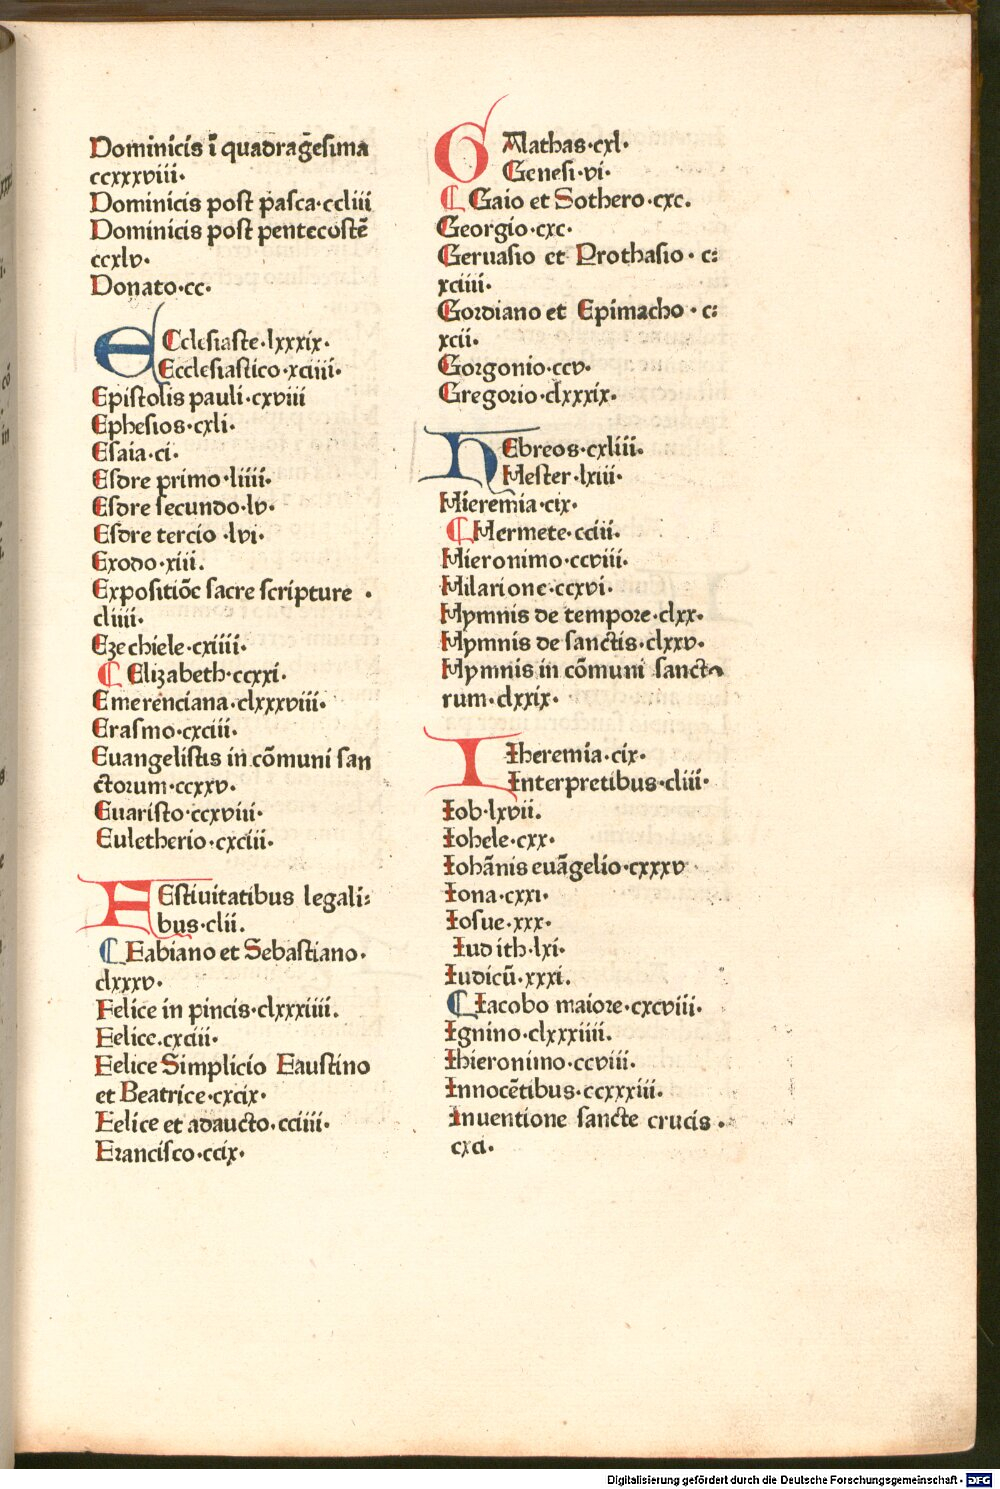 Dominicis ī quadragēsima
ccxxxviii·
Dominicis post pasca·ccliii
Dominicis post pentecostē
ccxlv·
Donato·cc·
ECclesiaste·lxxxix·
Ecclesiastico·xciiii·
Epistolis pauli·cxviii
Ephesios·cxli·
Esaia·ci·
Esdre primo·liiii·
Esdre secundo·lv·
Esdre tercio·lvi·
Exodo·xiii.
Expositiōe sacre scripture·
cliiii·
Ezechiele·cxiiii·
Elizabeth·ccxxi·
Emerenciana·clxxxviii·
Erasmo·cxciii·
Euangelistis in cōmuni san
ctorum·ccxxv·
Euaristo·ccxviii·
Euletherio·cxciii·
FEstiuitatibus legali:
bus·clii.
Fabiano et Sebastiano·
clxxxv·
Felice in pincis·clxxxiiii.
Felice.cxciii·
Felice Simplicio Faustino
et Beatrice·cxcix·
Felice et adaucto·cciii·
Francisco·ccix·
GAlathas·cxl·
Genesi·vi·
Gaio et Sothero·cxc.
Georgio·cxc·
Geruasio et Prothasio·c:
xciii·
Gordiano et Epimacho·c:
xcii·
Gorgonio·ccv·
Gregorio·clxxxix·
HEbreos·cxliii·
Hester·lxiii·
Hieremia·cix·
Hermete·cciii·
Hieronimo·ccviii·
Hilarione·ccxvi·
Hymnis de tempore·clxx·
Hymnis de sanctis·clxxv·
Hymnis in cōmuni sancto
rum·clxxix·
IHeremia·cix·
Interpretibus·cliii·
Iob·lxvii.
Iohele·cxx·
Iohānis euāgelio·cxxxv
Iona·cxxi·
Iosue·xxx·
Iudith·lxi·
Iudicū·xxxi.
Iacobo maiore·cxcviii·
Ignino·clxxxiiii.
Ihieronimo·ccviii·
Innocētibus·ccxxxiii·
Inuentione sancte crucis·
cxci·
Digitalisierung gefördert durch die Deutsche Forschungsgemeinschaft - DFG